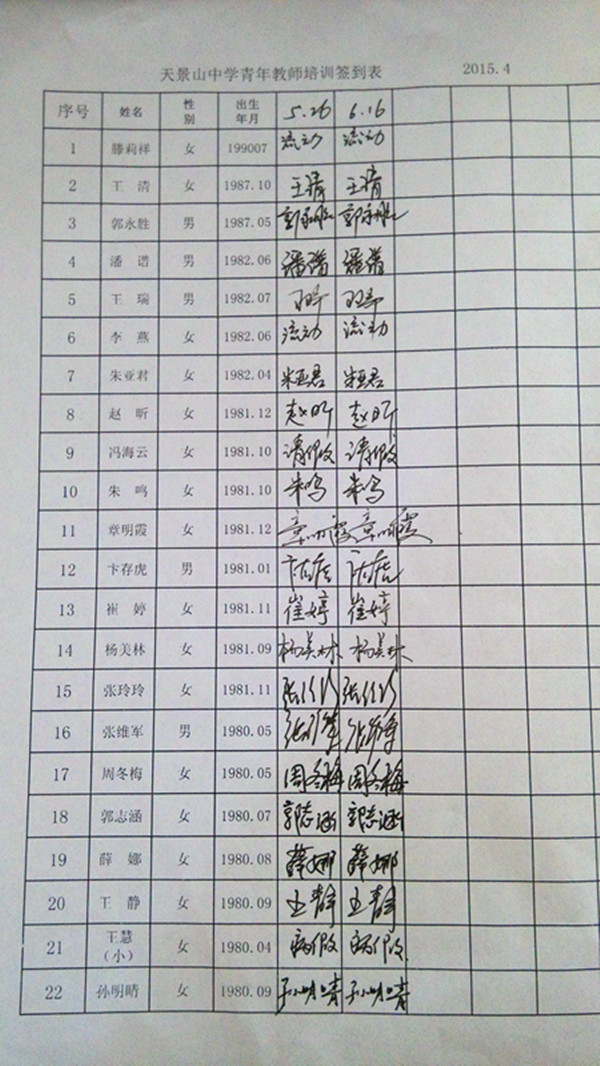 天景山中学青年教师培训签到表 2015.4
序号 姓名 性别 出生年月 5.26 6.16
1 滕莉祥 女 199007 流动 流动
2 王 清 女 1987.10 王清 王清
3 郭永胜 男 1987.05 郭永胜 郭永胜
4 潘 谱 男 1982.06 潘谱 潘谱
5 王 瑞 男 1982.07
6 李 燕 女 1982.06 流动 流动
7 朱亚君 女 1982.04 朱亚君 朱亚君
8 赵 昕 女 1981.12 赵昕 赵昕
9 冯海云 女 1981.10 请假 请假
10 朱 鸣 女 1981.10 朱鸣 朱鸣
11 章明霞 女 1981.12 章明霞 章明霞
12 卞存虎 男 1981.01 卞存虎 卞存虎
13 崔 婷 女 1981.11 崔婷 崔婷
14 杨美林 女 1981.09 杨美林 杨美林
15 张玲玲 女 1981.11 张玲玲 张玲玲
16 张维军 男 1980.05 张维军 张维军
17 周冬梅 女 1980.05 周冬梅 周冬梅
18 郭志涵 女 1980.07 郭志涵 郭志涵
19 薛 娜 女 1980.08 薛娜 薛娜
20 王 静 女 1980.09 王静 王静
21 王慧（小） 女 1980.04 病假 病假
22 孙明晴 女 1980.09 孙明晴 孙明晴